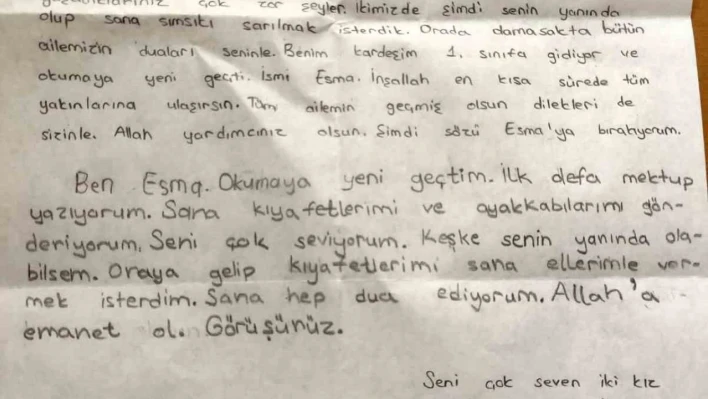 çok zor şeyler. İkimizde şimdi senin yanında
olup sana sımsıkı sarılmak isterdik. Orada olmasakta bütün
ailemizin duaları seninle. Benim kardeşim 1. sınıfa gidiyor ve
okumaya yeni geçti. İsmi Esma. İnşallah en kısa sürede tüm
yakınlarına ulaşırsın. Tüm ailemin geçmiş olsun dilekleri de
sizinle. Allah yardımcınız olsun. Şimdi sözü Esma'ya bırakıyorum.
Ben Esma. Okumaya yeni geçtim. İlk defa mektup
yazıyorum. Sana kıyafetlerimi ve ayakkabılarımı gön-
deriyorum. Seni çok seviyorum. Keşke senin yanında ola-
bilsem. Oraya gelip kıyafetlerimi sana ellerimle ver-
mek isterdim. Sana hep dua ediyorum. Allah'a
emanet ol. Görüşünüz.
Seni çok seven iki kız